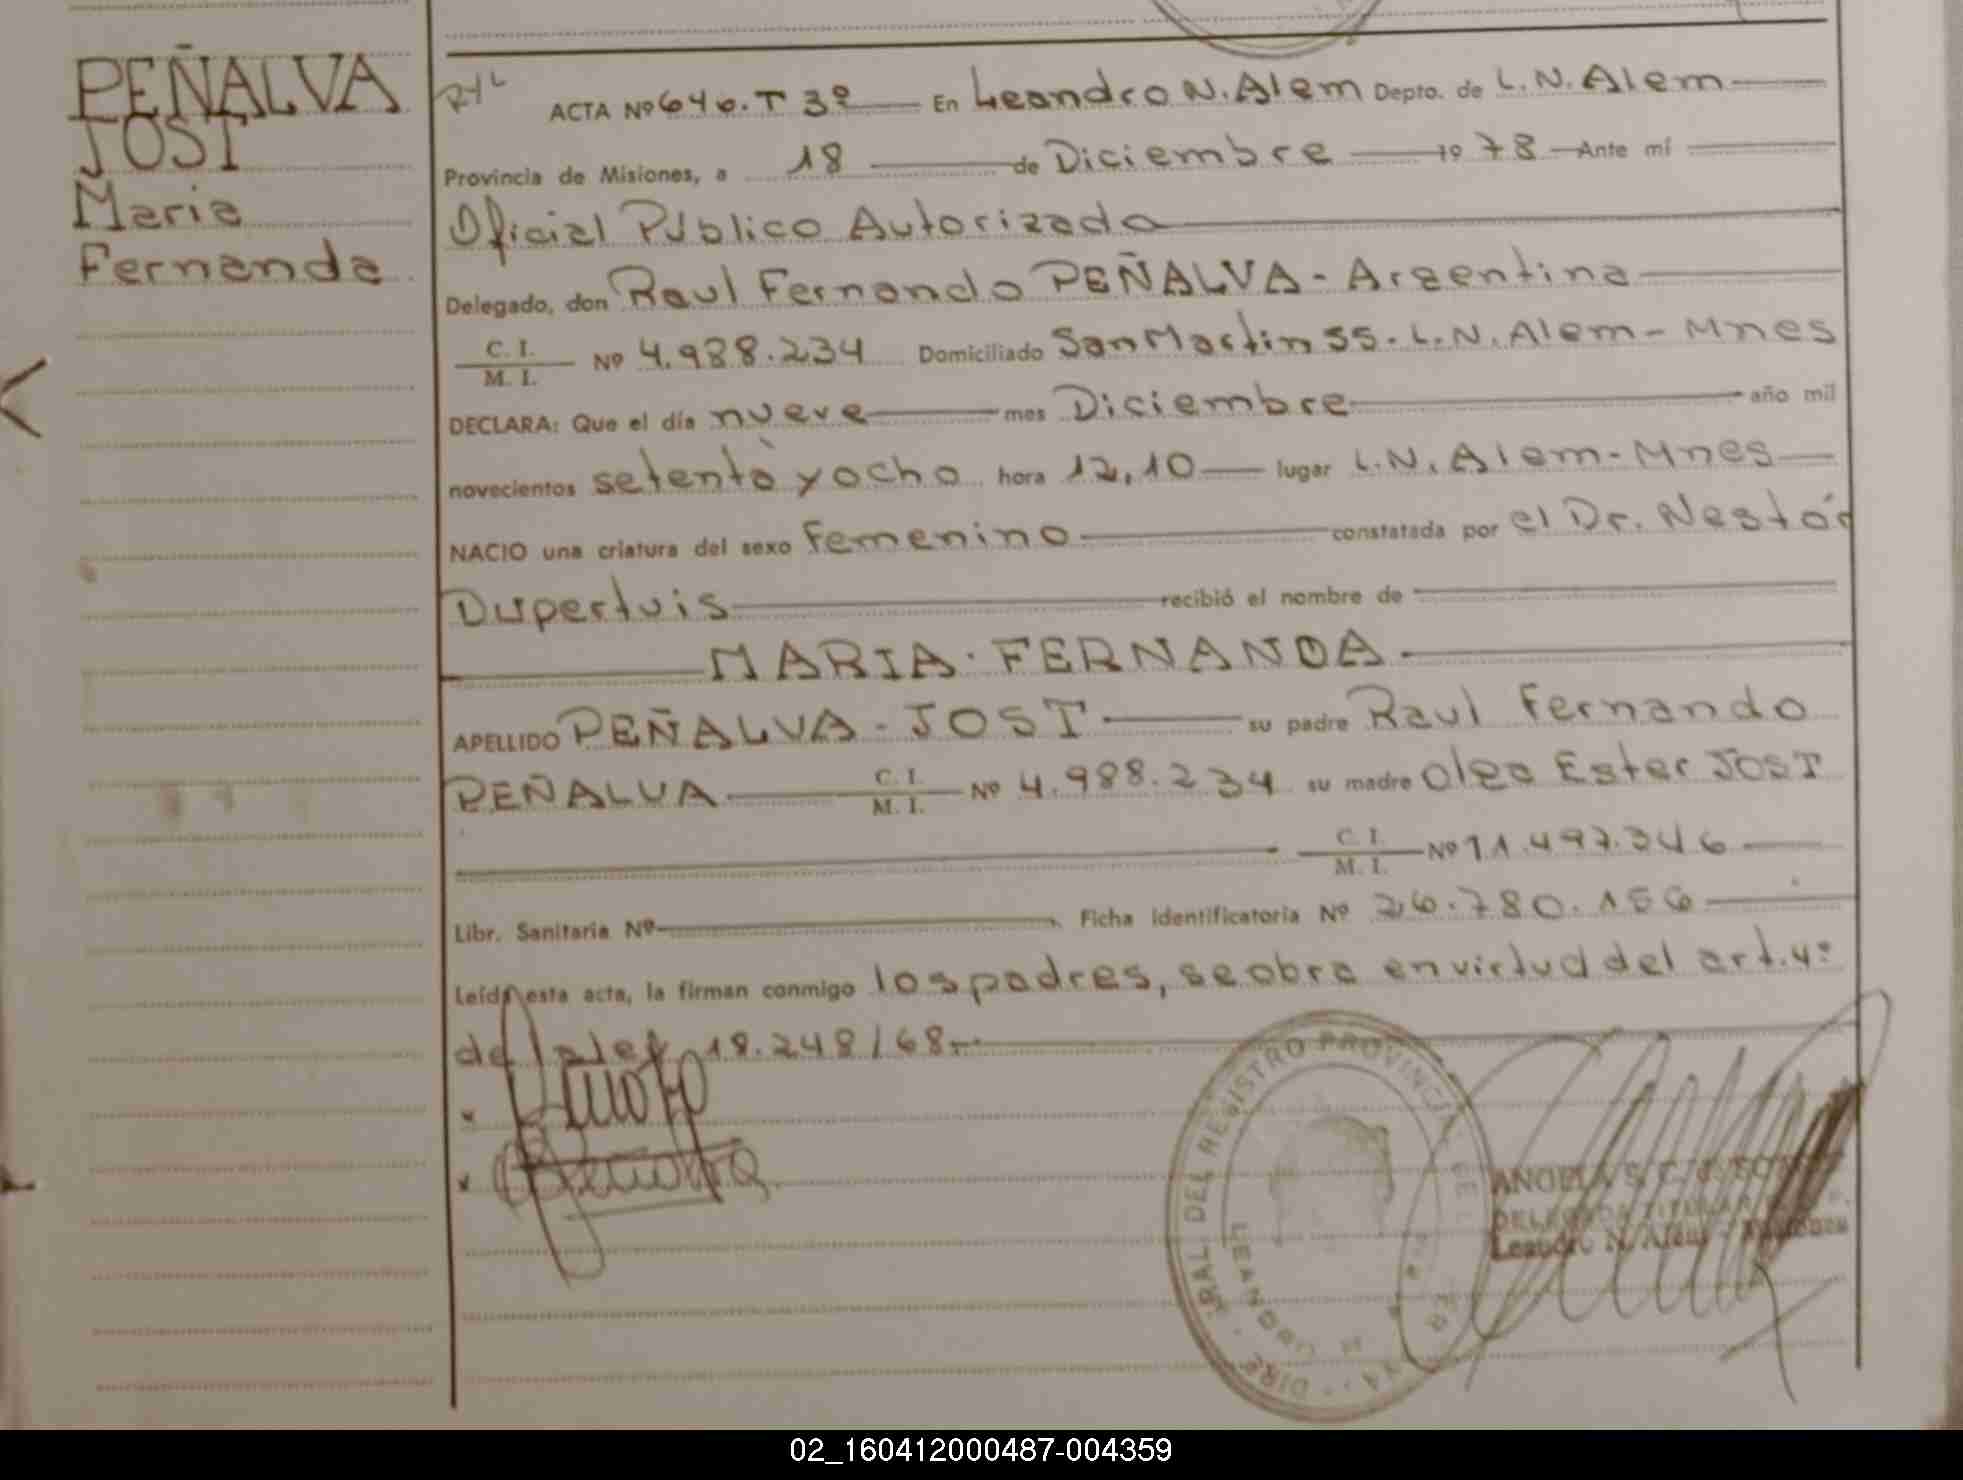 PEÑALVA
JOST
Maria
Fernanda
ACTA Nº 646. T 3º En Leandro N. Alem Depto. de L. N. Alem
Provincia de Misiones, a 18 de Diciembre 19 78 Ante mí
Oficial Público Autorizado
Delegado, don Raul Fernando PEÑALVA - Argentina
C. I.
M. I. Nº 4.988.234 Domiciliado San Martin 55. L. N. Alem - Mnes
DECLARA: Que el día nueve mes Diciembre año mil
novecientos setenta y ocho hora 12,10 lugar L.N. Alem - Mnes
NACIO una criatura del sexo Femenino constatada por el Dr. Nestór
Dupertuis recibió el nombre de
MARIA. FERNANDA.
APELLIDO PEÑALVA - JOST su padre Raul Fernando
PEÑALVA C. I. M. I. Nº 4.988.234 su madre Olga Ester JOST
C. I. M. I. Nº 11.497.346
Libr. Sanitaria Nº Ficha Identificatoria Nº 26.780.156
Leída esta acta, la firman conmigo los padres, se obra en virtud del art. 4º
de la ley 18.248/68.-
DEL REGISTRO PROVINCIAL DE
LEANDRO
DELEGADA TITULAR
Leandro N. Alem - Misiones
02_160412000487-004359